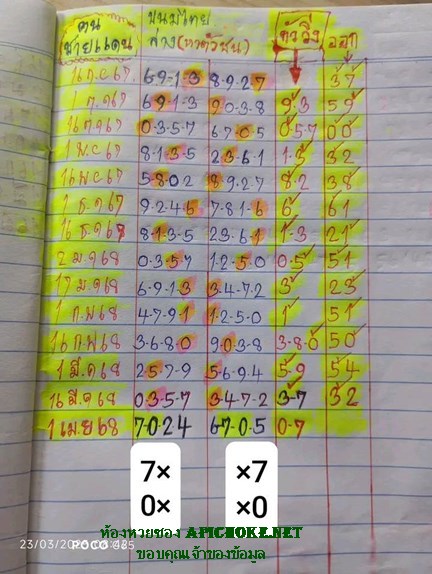 คน ขนมไทย ตัววิ่ง ออก
ชายแดน ล่าง(หาตัวชน)
16 ก.ย 67 6-9-1-3 8-9-2-7 37
1 ต.ค 67 6-9-1-3 9-0-3-8 9-3 59
16 ต.ค 67 0-3-5-7 6-7-0-5 0-5-7 00
1 พ.ย 67 8-1-3-5 2-3-6-1 1-3 32
16 พ.ย 67 5-8-0-2 8-9-2-7 8-2 38
1 ธ.ค 67 9-2-4-6 7-8-1-6 6 61
16 ธ.ค 67 8-1-3-5 2-3-6-1 1-3 21
2 ม.ค 68 0-3-5-7 1-2-5-0 0-5 51
17 ม.ค 68 6-9-1-3 3-4-7-2 3 23
1 ก.พ 68 4-7-9-1 1-2-5-0 1 51
16 ก.พ 68 3-6-8-0 9-0-3-8 3-8-0 50
1 มี.ค 68 2-5-7-9 5-6-9-4 5-9 54
16 มี.ค 68 0-3-5-7 3-4-7-2 3-7 32
1 เม.ย 68 7-0-2-4 6-7-0-5 0-7
7× ×7
0× ×0
ห้องหวยของ APICHOKE.NET
ขอบคุณเจ้าของข้อมูล